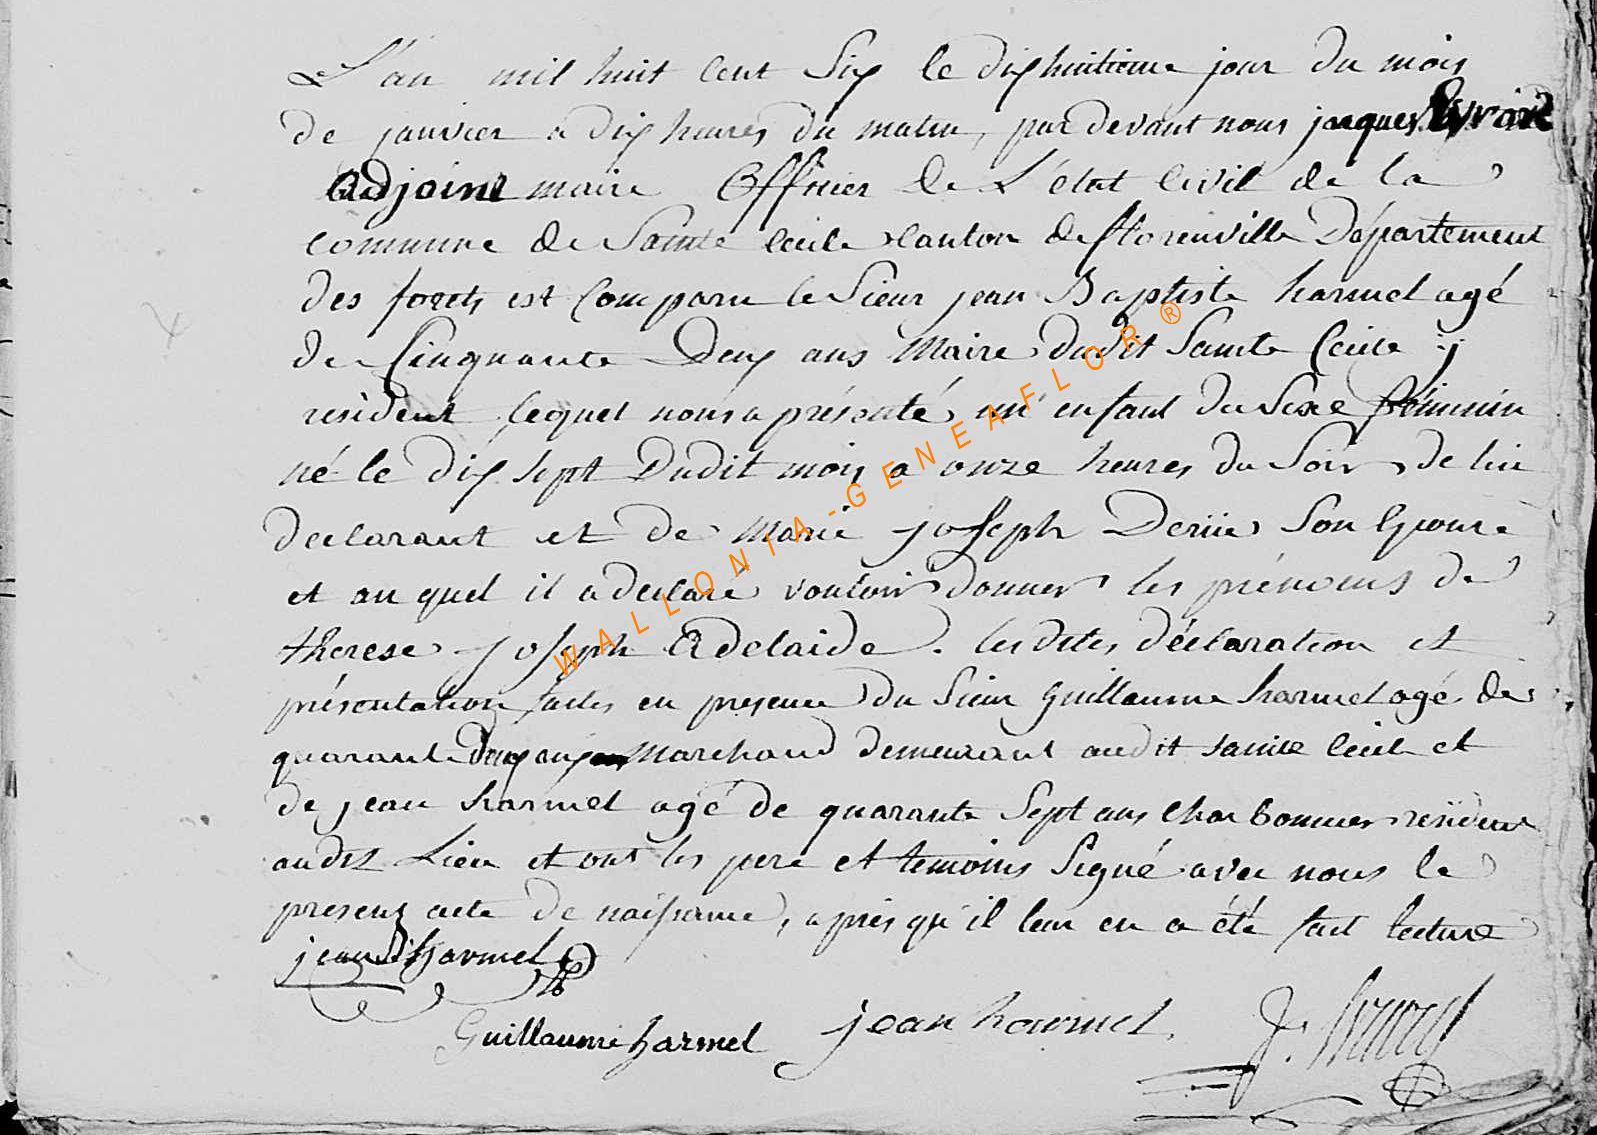 L'an mil huit cent Six le dixhuitieme jour du mois
de janvier a dix heures du matin, pardevant nous jacques
adjoint maire Officier de L'état Civil de la
commune de Sainte Cecile canton de florenville Département
des forets est Comparu le Sieur jean Baptiste harmel agé
de Cinquante Deux ans Maire dudit Sainte Cecile y
resident lequel nous a présenté un enfant du Sexe féminin
né le dix sept dudit mois a onze heures du Soir de lui
declarant et de Marie joseph Son Epouse
et au quel il a declaré vouloir donner les prénoms de
therese joseph Adelaide. lesdites déclaration et
présentation faites en presence du Sieur Guillaume harmel agé de
quarante deux ans Marchand demeurant audit Sainte Cecile et
de jean harmel agé de quarante Sept ans Charbonnier resident
audit Lieu et ont les pere et temoins Signé avec nous le
present acte de naissance, après qu'il leur en a été fait lecture
jean B harmel
Guillaume harmel jean harmel J.
WALLONIA-GENEAFLOR ®